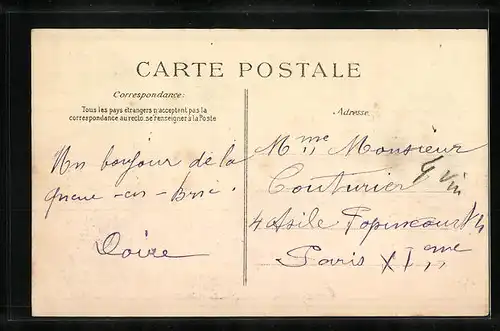 CARTE POSTALE
Correspondance:
Tous les pays étrangers n'acceptent pas la
correspondance au recto, se renseigner à la Poste
Un bonjour de la
queue - en - Brie.
Adresse
Mme Monsieur
Couturier
4 Asile Popincourt 4
Paris XIeme